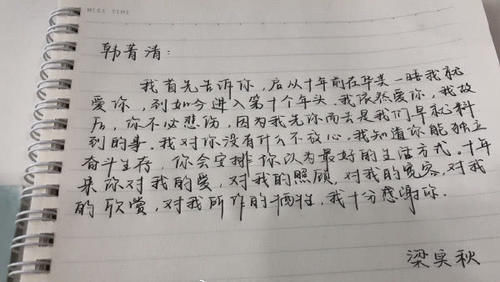 NICE TIME
韩菁清：
我首先告诉你，启从十年前在华美一晤我就
爱你，到如今进入第十个年头，我依然爱你，我故
后，你不必悲伤，因为我先你而去是我们早就料
到的事。我对你没有什么不放心，我知道你能独立
奋斗生存，你会安排你认为最好的生活方式。十年
来你对我的爱，对我的照顾，对我的宽容，对我
的欣赏，对我所作的牺牲，我十分感谢你．
梁实秋